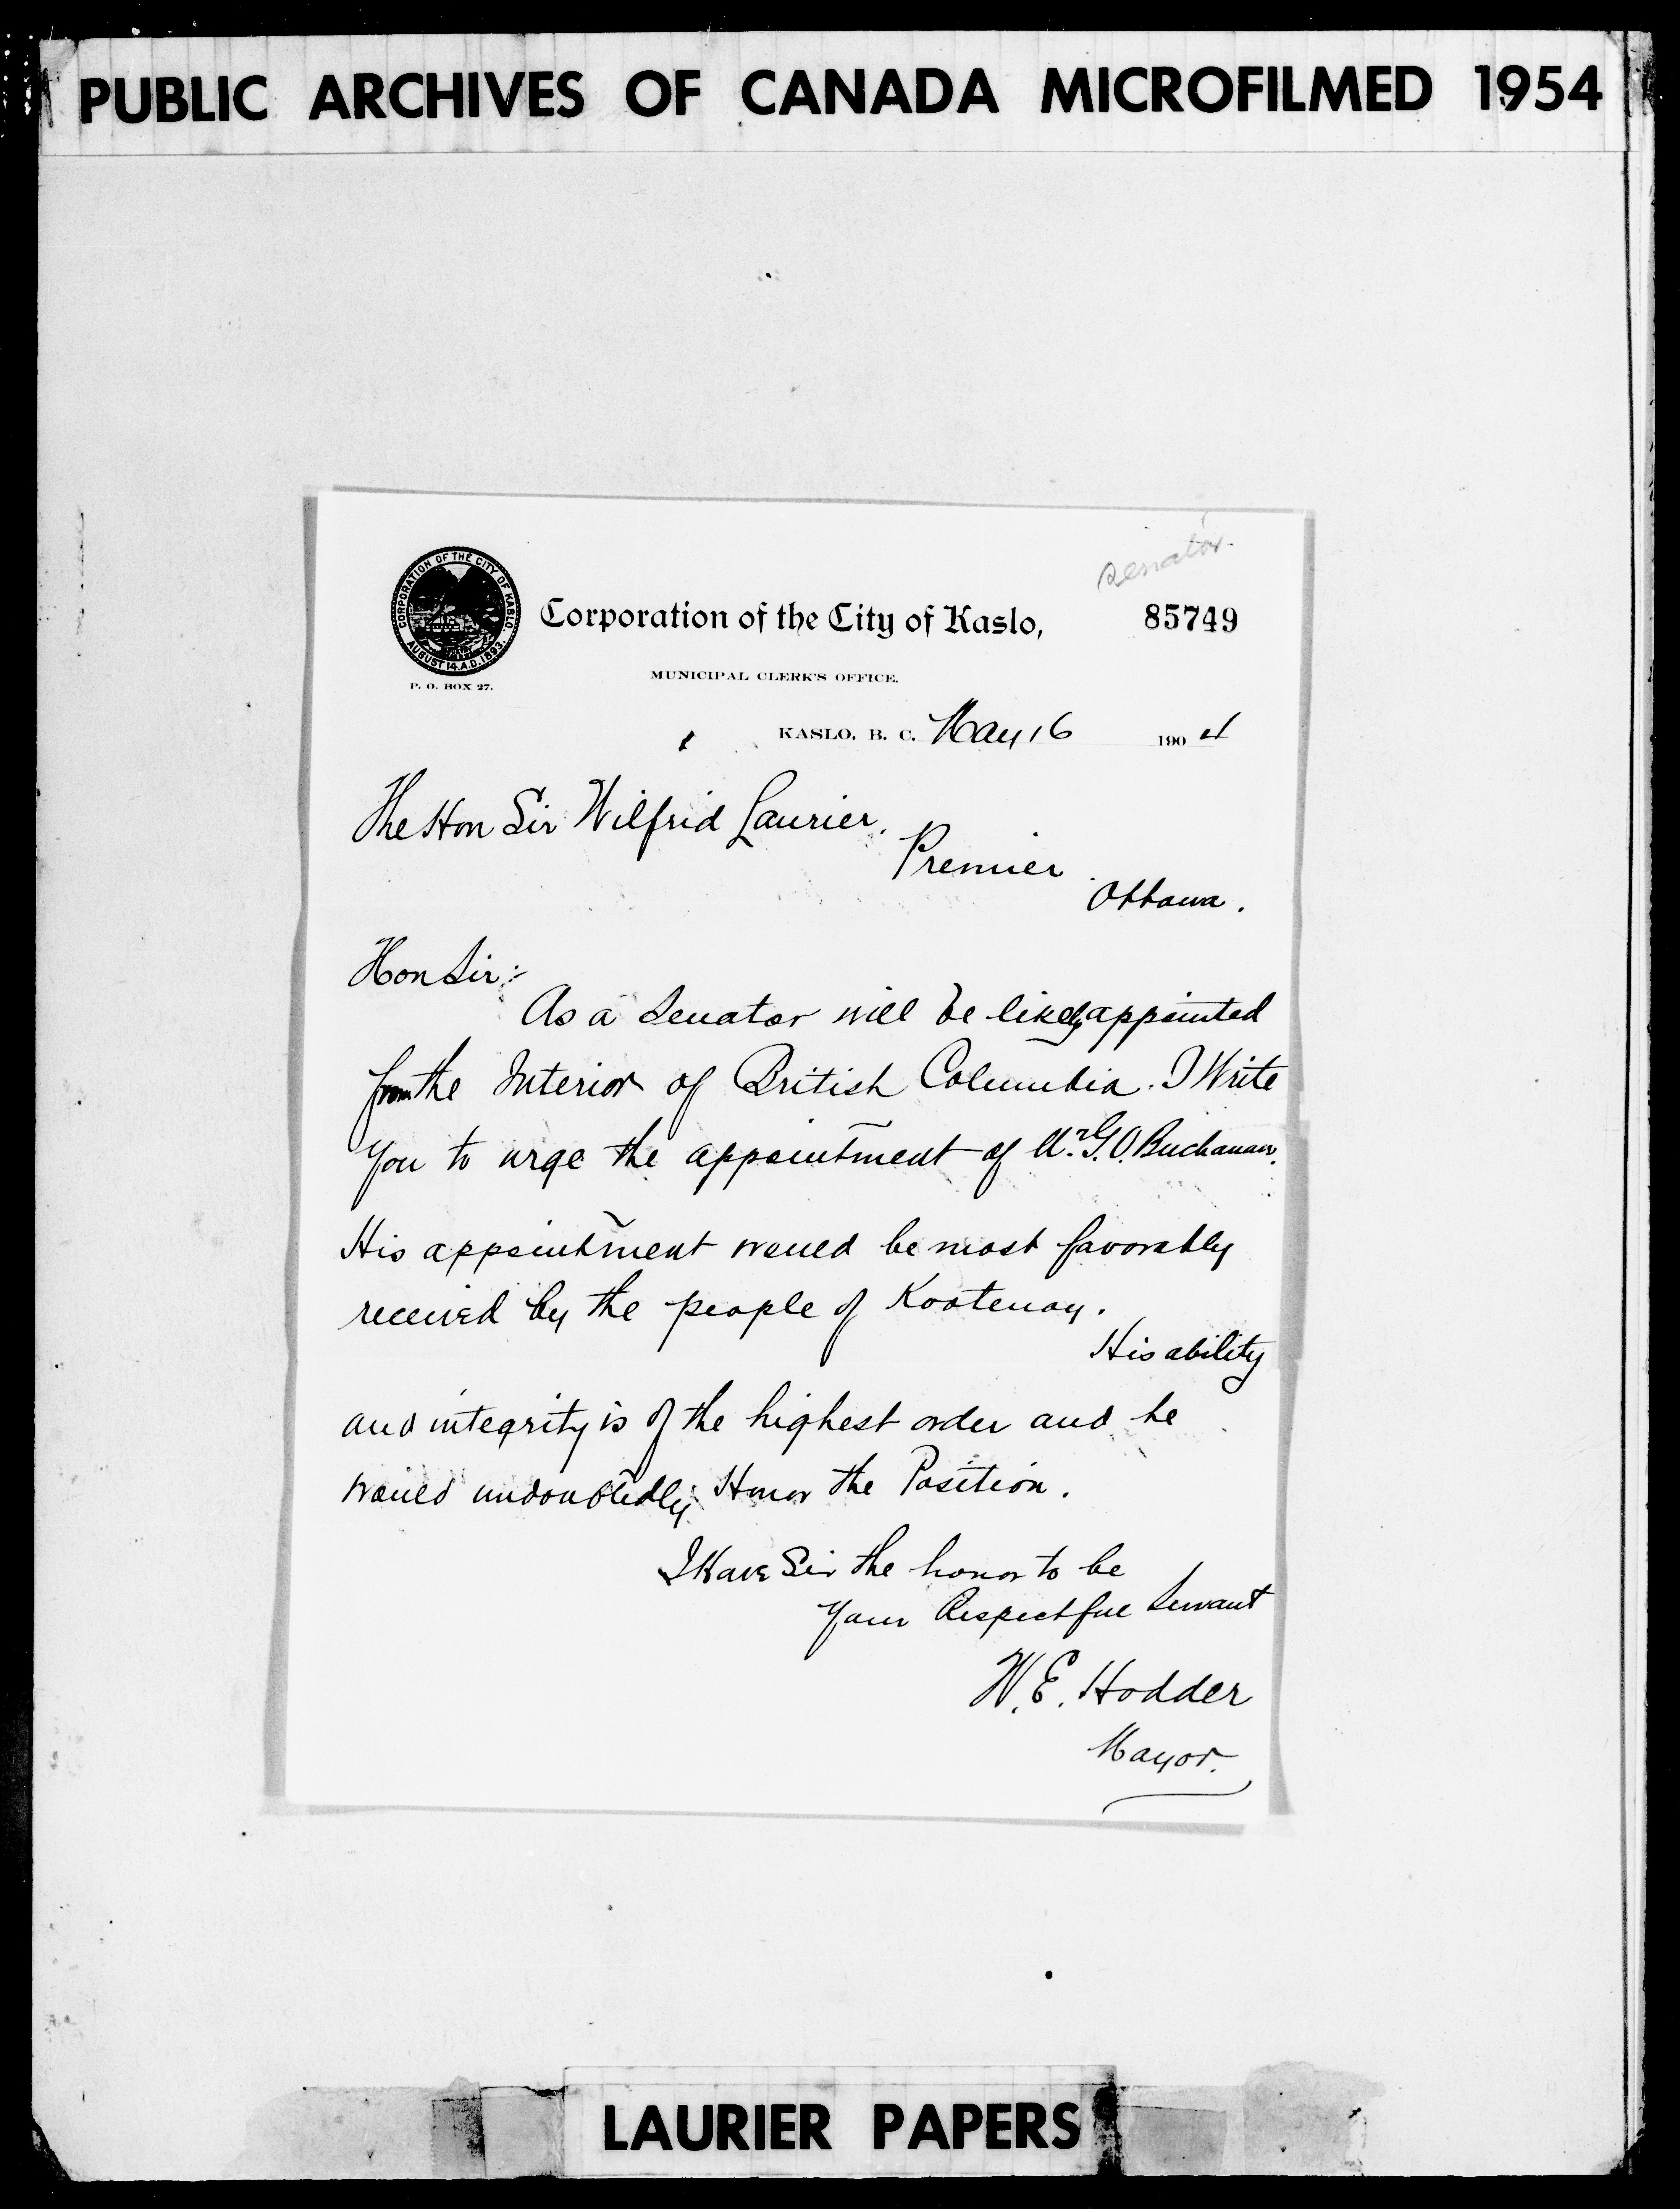 PUBLIC ARCHIVES OF CANADA MICROFILMED 1954
senator
CORPORATION OF THE CITY OF KASLO
AUGUST 14. A.D. 1893.
Corporation of the City of Kaslo,
85749
MUNICIPAL CLERK'S OFFICE.
P. O. BOX 27.
KASLO, B. C. May 16 1904
The Hon Sir Wilfrid Laurier.
Premier
Ottawa.
Hon Sir:-
As a Senator will be likely appointed
from the Interior of British Columbia. I Write
You to urge the appointment of Mr. G. O. Buchanan.
His appointment would be most favorably
received by the people of Kootenay.
His ability
and integrity is of the highest order and he
would undoubtedly Honor the Position.
I Have Sir the honor to be
Your Respectful Servant
W. E. Hodder
Mayor.
LAURIER PAPERS